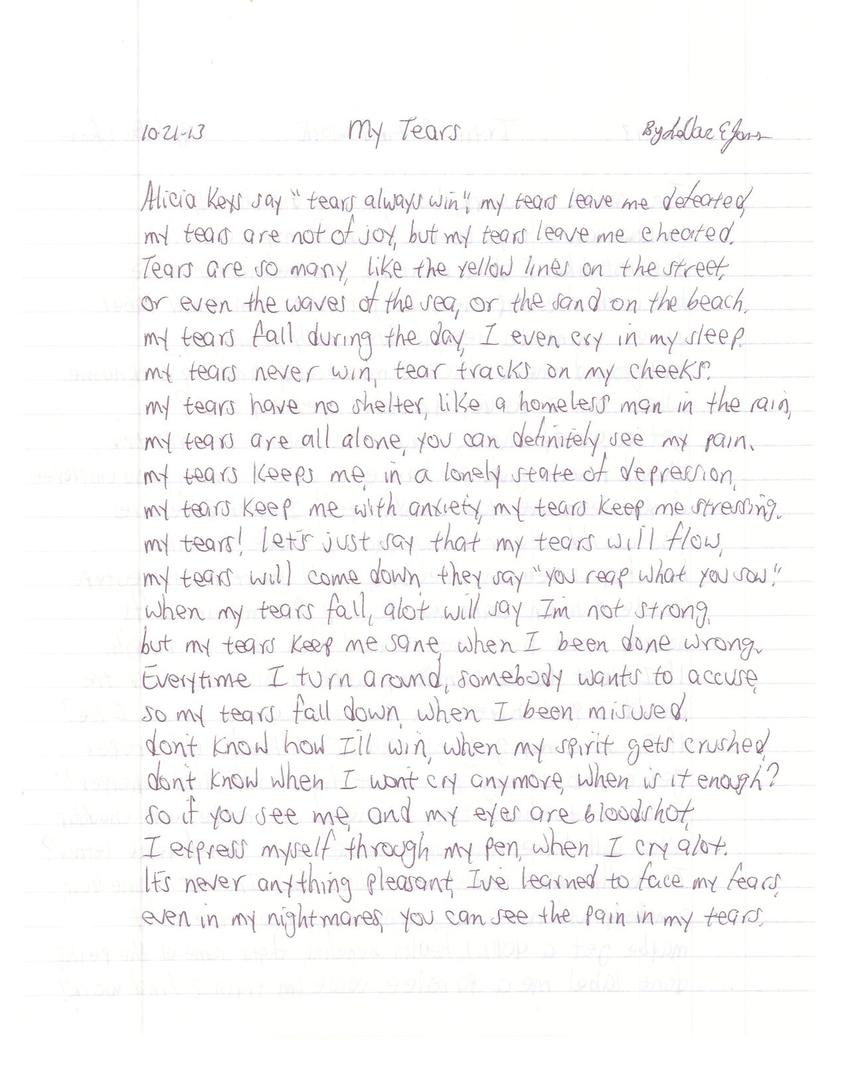 10-21-13 My Tears By
Alicia Keys say "tears always win", my tears leave me defeated,
my tears are not of joy, but my tears leave me cheated.
Tears are so many, like the yellow lines on the street,
or even the waves of the sea, or the sand on the beach.
my tears fall during the day, I even cry in my sleep.
my tears never win, tear tracks on my cheeks.
my tears have no shelter, like a homeless man in the rain,
my tears are all alone, you can definitely see my pain.
my tears keeps me, in a lonely state of depression,
my tears keep me with anxiety, my tears keep me stressing.
my tears! let's just say that my tears will flow,
my tears will come down, they say "you reap what you sow."
when my tears fall, alot will say I'm not strong,
but my tears keep me sane, when I been done wrong.
Everytime I turn around, somebody wants to accuse,
so my tears fall down, when I been misused.
don't know how I'll win, when my spirit gets crushed,
don't know when I won't cry anymore, when is it enough?
so if you see me, and my eyes are bloodshot,
I express myself through my pen, when I cry alot.
It's never anything pleasant, I've learned to face my fears,
even in my nightmares, you can see the pain in my tears.